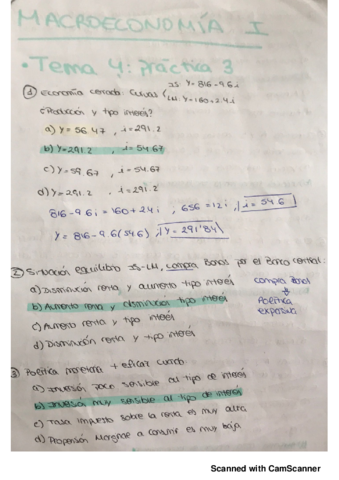 MACROECONOMÍA I
• Tema 4: práctica 3
① Economía cerrada. Curvas { IS: Y=816-9.6i
LM: Y=160+2.4i
¿Producción y tipo interés?
a) Y=56.47, i=291.2
b) Y=291.2, i=54.67
c) Y=59.67, i=54.67
d) Y=291.2, i=291.2
816-9.6i=160+2.4i, 656=12i, i=54.6
Y=816-9.6(54.6), Y=291'84
② Situación equilibrio IS-LM, compra Bonos por el Banco central:
a) Disminución renta y aumento tipo interés
b) Aumento renta y disminución tipo interés
c) Aumento renta y tipo interés
d) Disminución renta y tipo interés
compra Bonos
↓
Política
expansiva
③ Política monetaria + eficaz cuando
a) Inversión poco sensible al tipo de interés
b) Inversión muy sensible al tipo de interés
c) Tasa impuesto sobre la renta es muy alta
d) Propensión Marginal a consumir es muy baja
Scanned with CamScanner